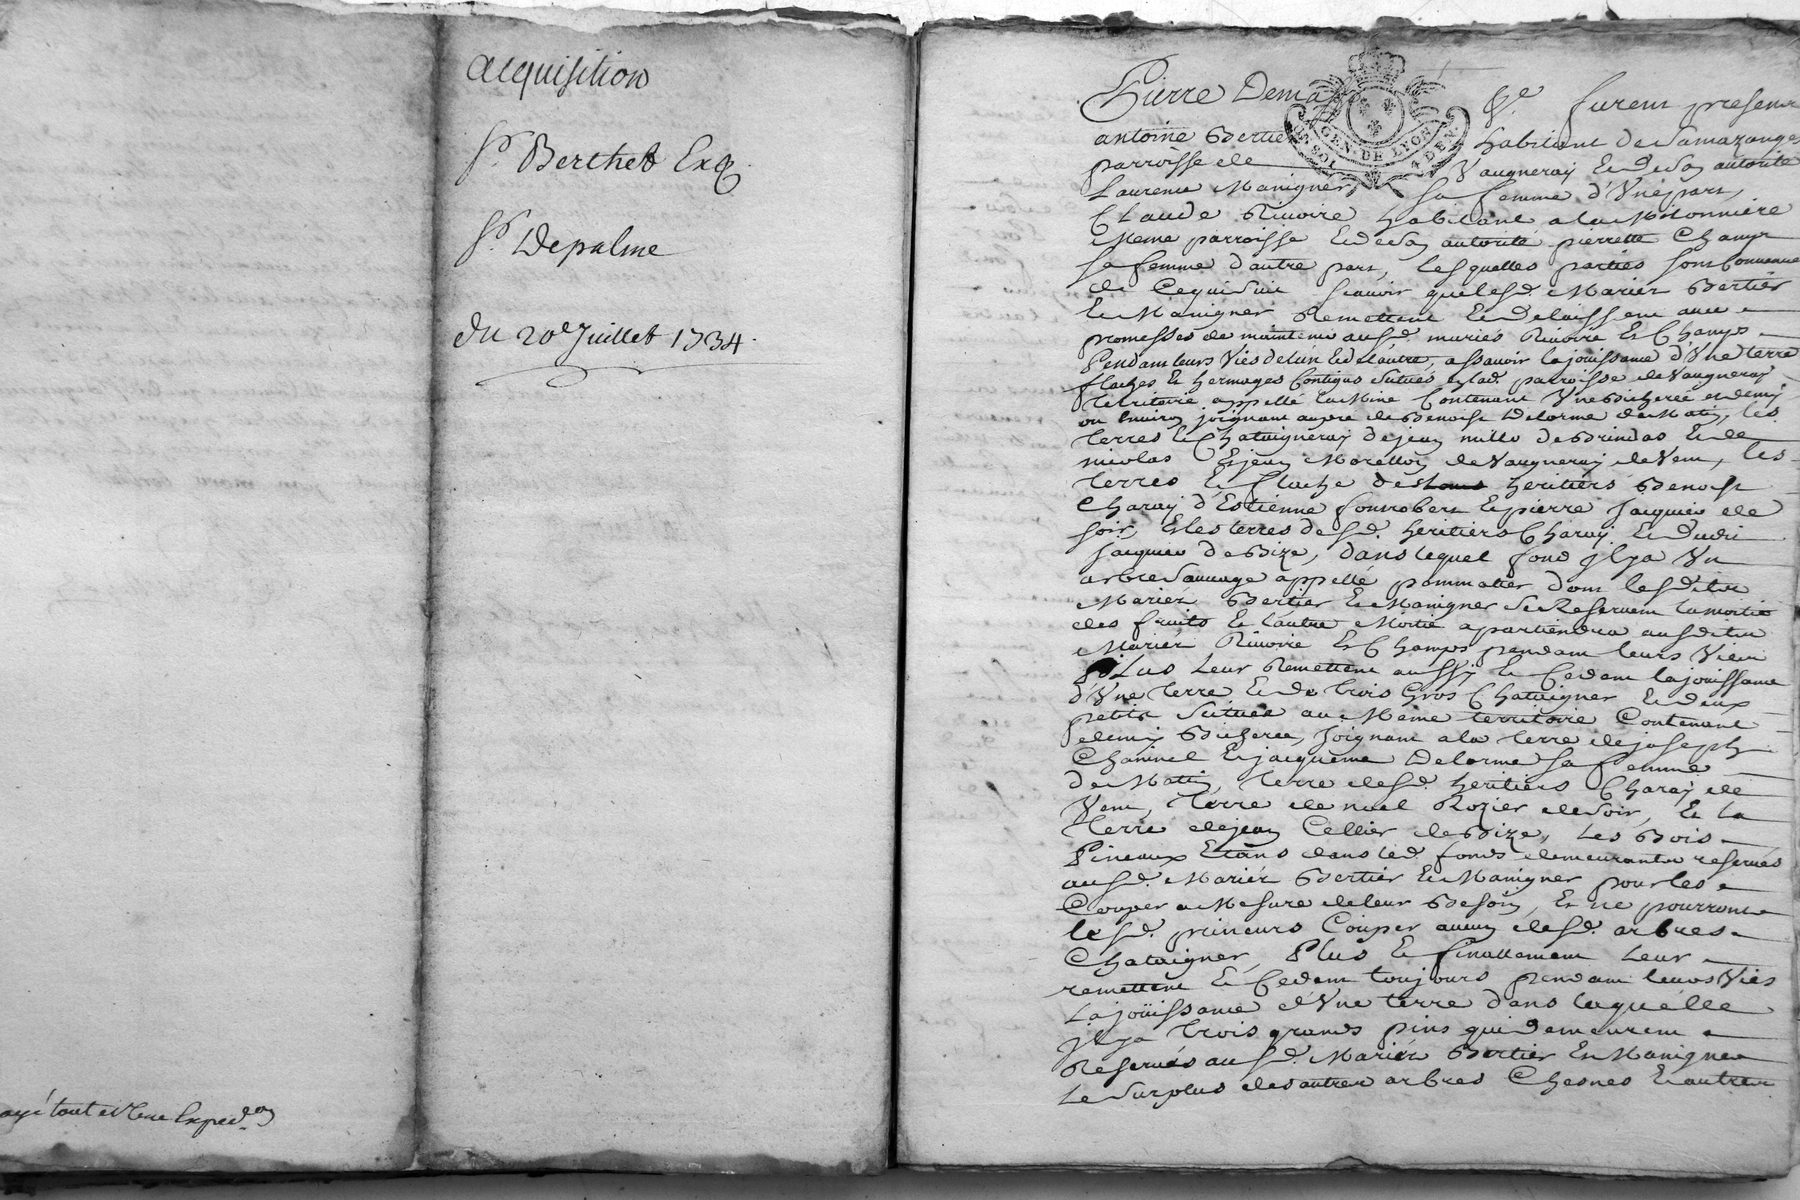 acquisition
Sr. Berthet Exq.
Sr. Depalme
du 20e Juillet 1734.
payé tout et Une Exped.on
Pierre Dema furent presens
antoine Bertier habitant de Samazange
parroisse de Vaugneray Et de Son autorité
Laurence Manigner, sa femme d'Une part,
Claude Riuoire habitant a la Milonniere
Meme parroisse Et de Son autorité pierrette Champs
sa femme d'autre part, lesquelles parties sont Conuenues
de Cequi Suit scauoir que lesd. Mariez Bertier
Et Manigner Remettent Et Delaissent auec
promesses de maintenir ausd. mariés Riuoire Et Champs
Pendant leurs Viès de lun Et de lautre, assauoir la joüissance d'Une terre
flaches Et hermages Contigus Situés en lad. parroisse de Vaugneray
territoire appellé la Mine Contenant Une Bicherée et demy
ou Enuiron joignant de Benoist Delorme de Matin, les
terres Et Chataigneray de jean mille de Brindas Et de
nicolas Et jean Morellon de Vaugneray de Vent, les
terres Et flache des heritiers Benoist
Charuy d'Estienne fonrobert Et pierre Jacquier de
soir, Et les terres desd. heritiers Charuy Et dudit
Jacquier de Bize, dans lequel fond jl ya Un
arbre Sauuage appellé pommatier dont lesdits
Mariez Bertier Et Manigner Se Reseruent la moitie
des fruits Et l'autre Moitie apartiendra ausdits
Mariez Riuoire Et Champs pendant leurs Vies
Plus Leur Remettent aussy Et Cedent la joüissance
d'Une terre Et de trois Gros Chataigner Et deux
petits Scituée au Meme territoire Contenant
demy Bicherée, joignant a la terre de joseph
Chaninel Et jacqueme Delorme sa femme
de Matin, terre desd. heritiers Charuy de
Vent, terre de noel Rozier de soir, Et la
terre de jean Cellier de Bize, Les Bois
Pineaux Etans dans led. fonds demeurants reserués
ausd. Mariez Bertier Et Manigner pour les
Couper a Mesure de leur Besoin, Et ne pourront
lesd. prineurs Couper aucun desd. arbres
Chataigner, Plus Et finallement Leur
remettent Et Cedent toujours pendant leurs Vies
La joüissance d'Une terre dans laquelle
jl ya trois grands pins qui demeurent
Reserués ausd. Mariéz Bertier Et Manigner
Le Surplus des autres arbres Chesnes Et autres